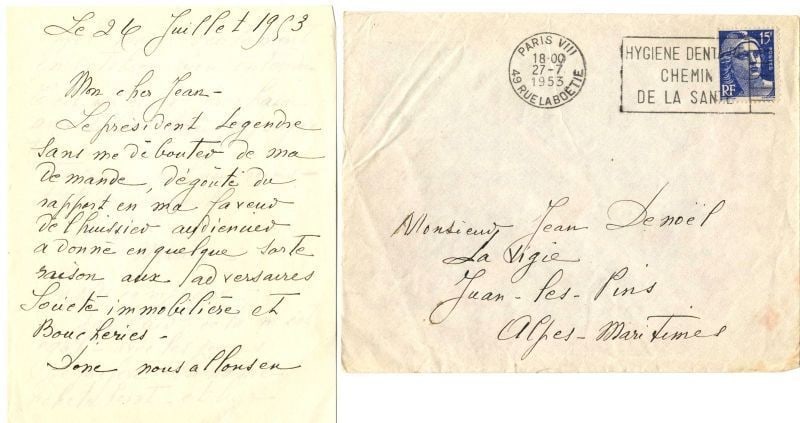 Le 26 Juillet 1953
Mon cher Jean -
Le président Legendre
sans me débouter de ma
demande, dégoûté du
rapport en ma faveur
de l'huissier audiencier
a donné en quelque sorte
raison aux adversaires
Société immobilière et
Boucheries -
Donc nous allons en
PARIS VIII
18·00
27-7
1953
49 RUE LA BOETIE
HYGIENE DENTA
CHEMIN
DE LA SANTE
15F
POSTES
RF
Monsieur Jean Denoël
La Vigie
Juan-les-Pins
Alpes-Maritimes